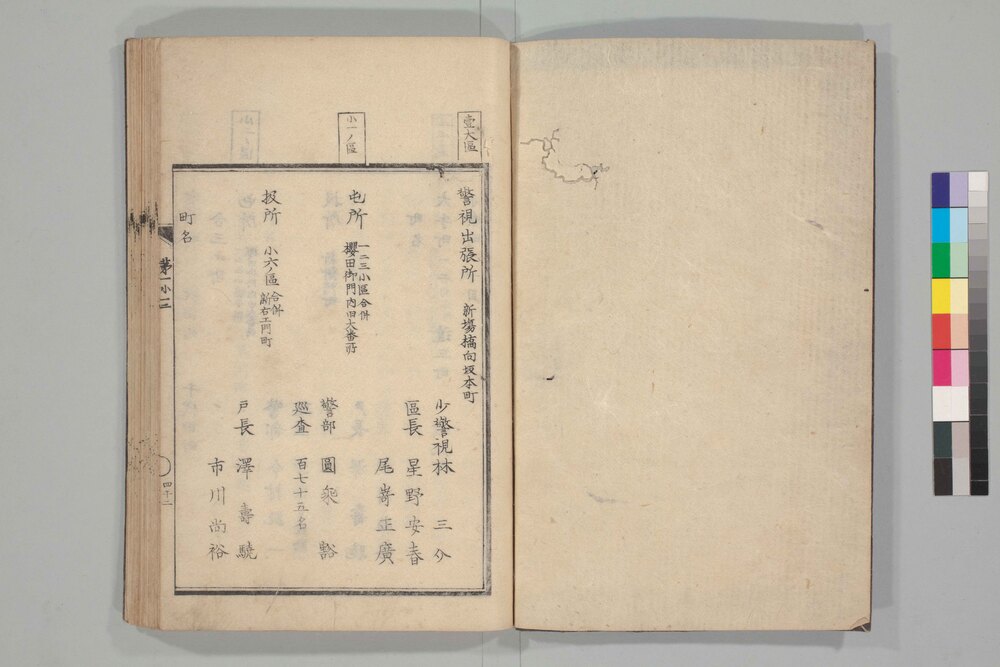 壹大區
警視出張所 新塲橋向坂本町
少警視 林 三介
區長 星野安春
尾嵜正廣
小一ノ區
屯所 一二三小區合併
櫻田御門内旧大番所
警部 圓 豁
巡査 百七十五名
扱所 小六ノ區合併
新右エ門町
戸長 澤 壽驍
市川尚裕
町名
第一小一
四十二